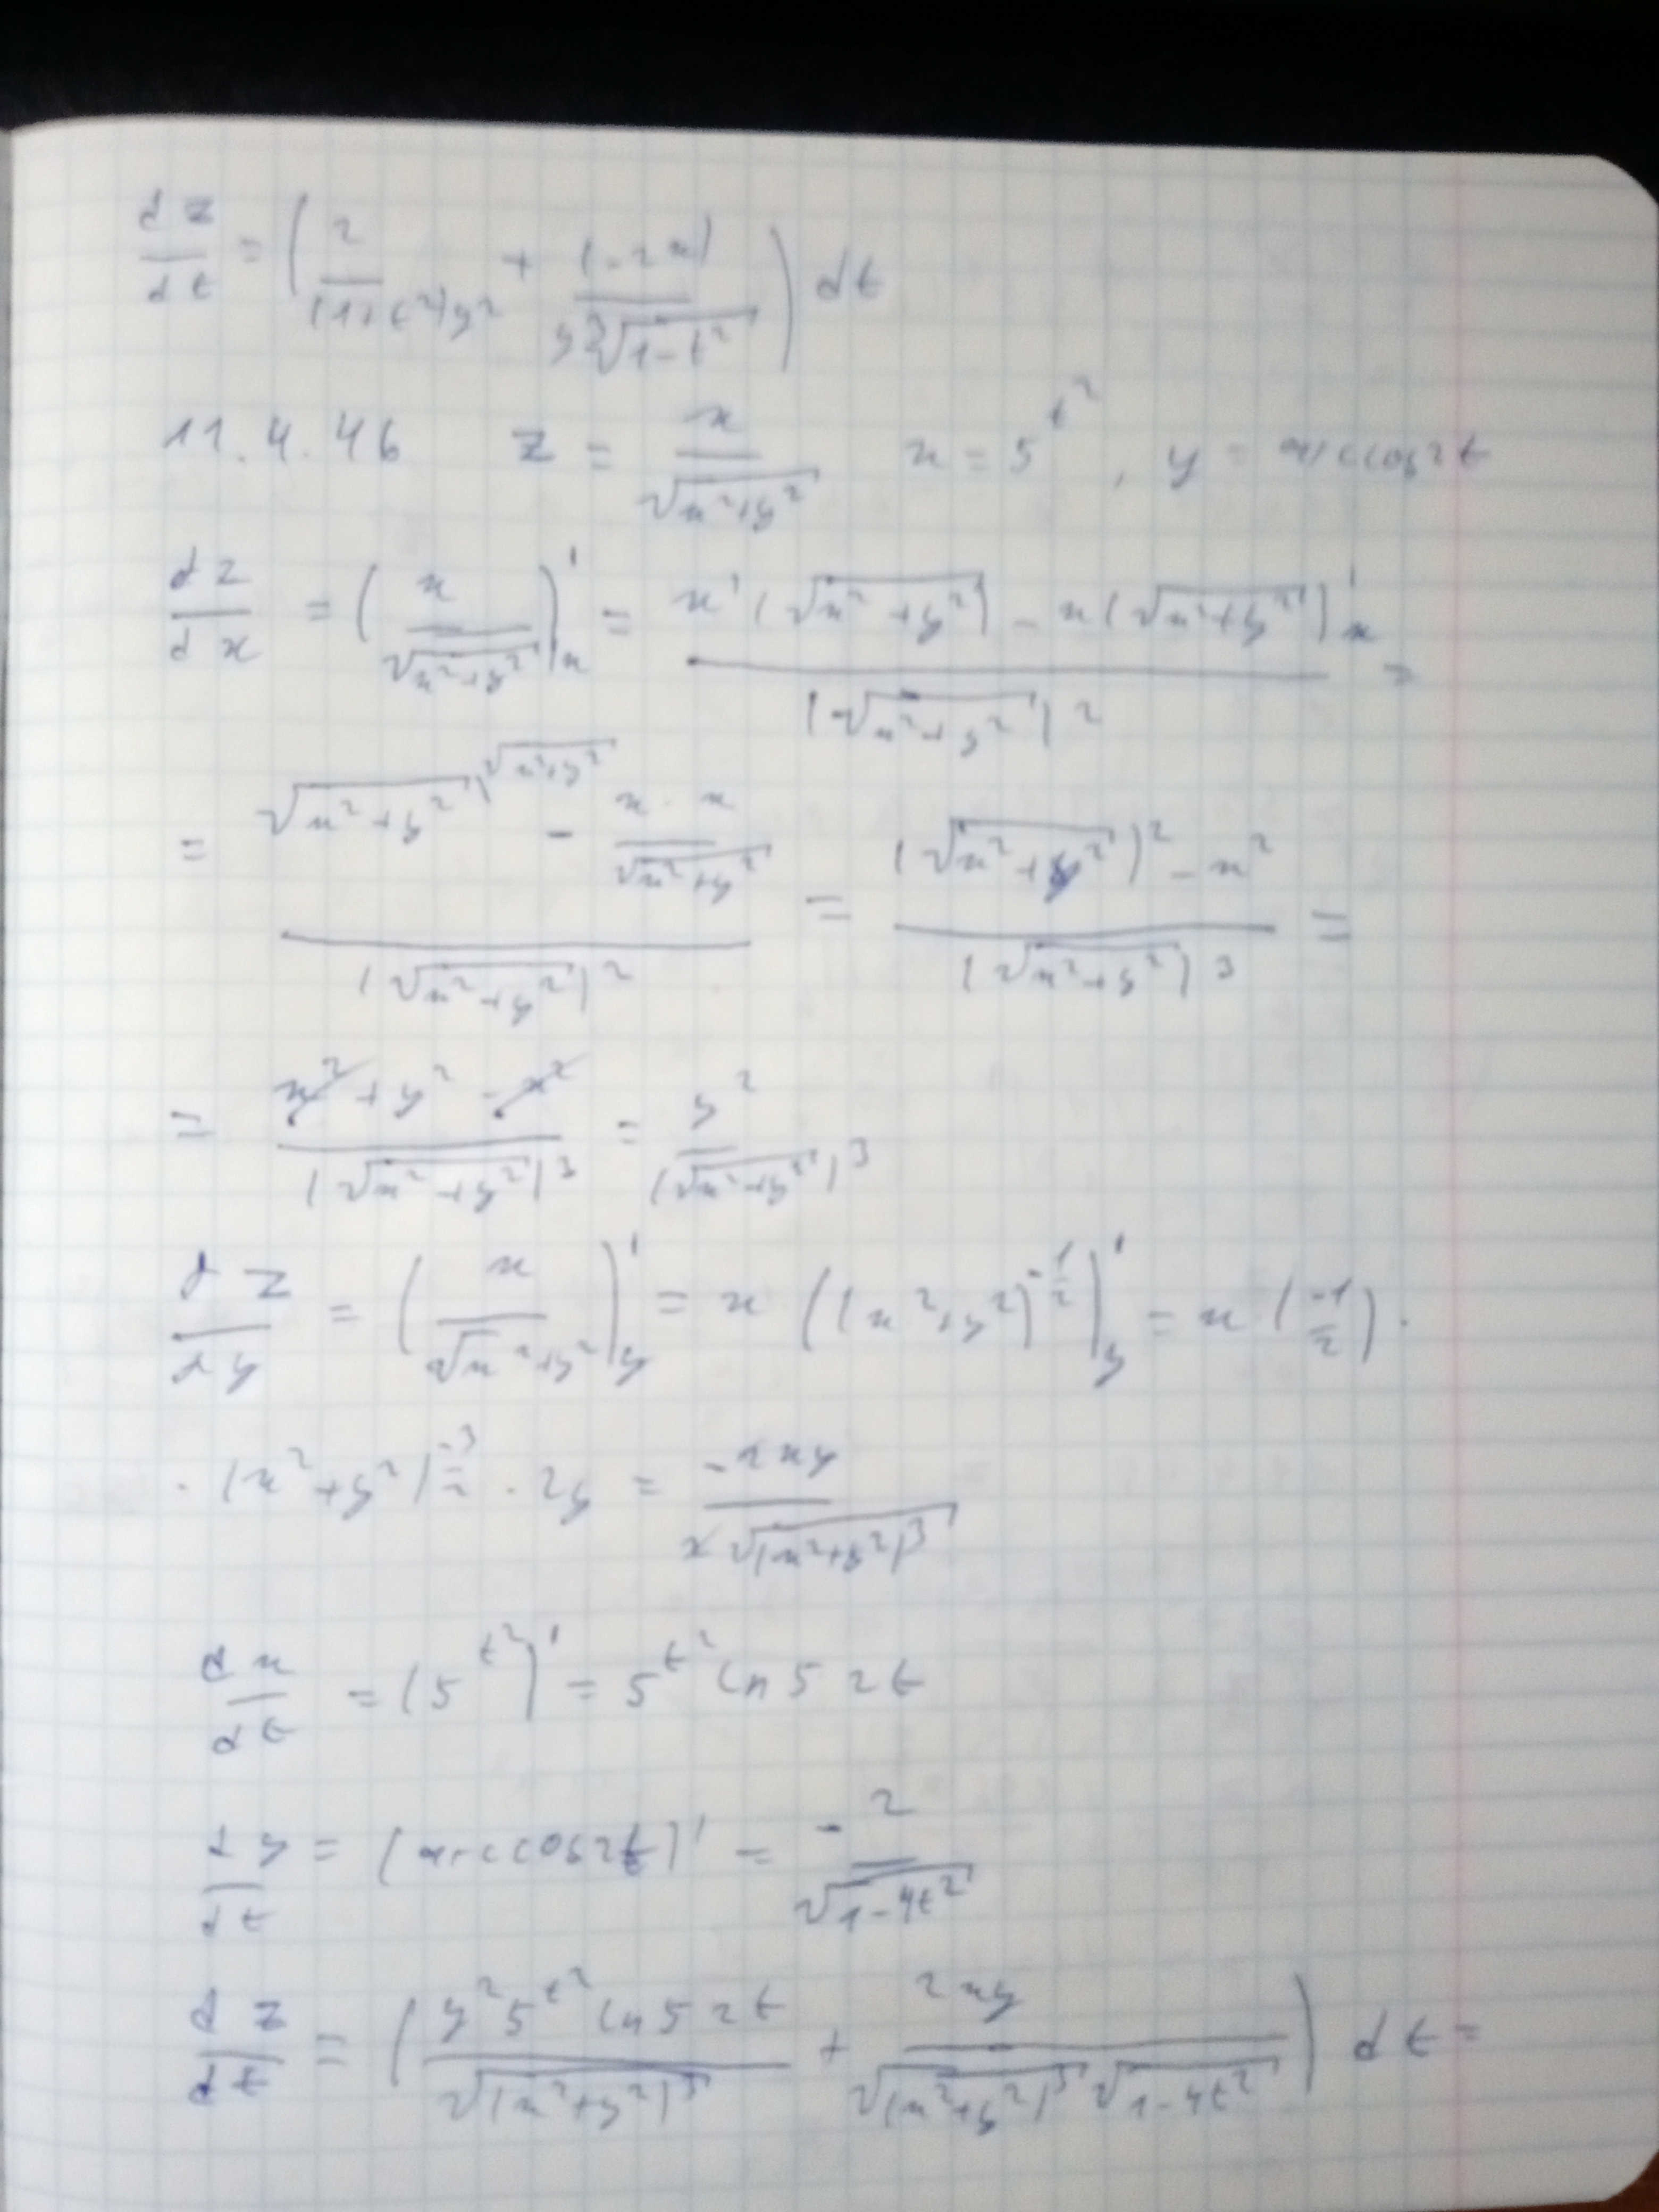 dz/dt = (2/((1+t²)y²) + (-2x)/(y³√(1-t²))) dt
11.4.46 z = x/√(x²+y²) x = 5^t², y = arccos2t
dz/dx = (x/√(x²+y²))'ₓ = (x'(√(x²+y²)) - x(√(x²+y²))'ₓ)/(√(x²+y²))² =
= (√(x²+y²)^(√(x²+y²)) - (x·x)/√(x²+y²))/(√(x²+y²))² = ((√(x²+y²))² - x²)/(√(x²+y²))³ =
= (x² + y² - x²)/(√(x²+y²))³ = y²/(√(x²+y²))³
dz/dy = (x/√(x²+y²))'y = x ((x²+y²)^(-1/2))'y = x·(-1/2)·
· (x²+y²)^(-3/2) · 2y = -2xy/(2√(x²+y²)³)
dx/dt = (5^t²)' = 5^t² ln5 2t
dy/dt = (arccos2t)' = -2/√(1-4t²)
dz/dt = (y²5^t² ln5 2t/√(x²+y²)³ + 2xy/(√(x²+y²)³ √(1-4t²))) dt =